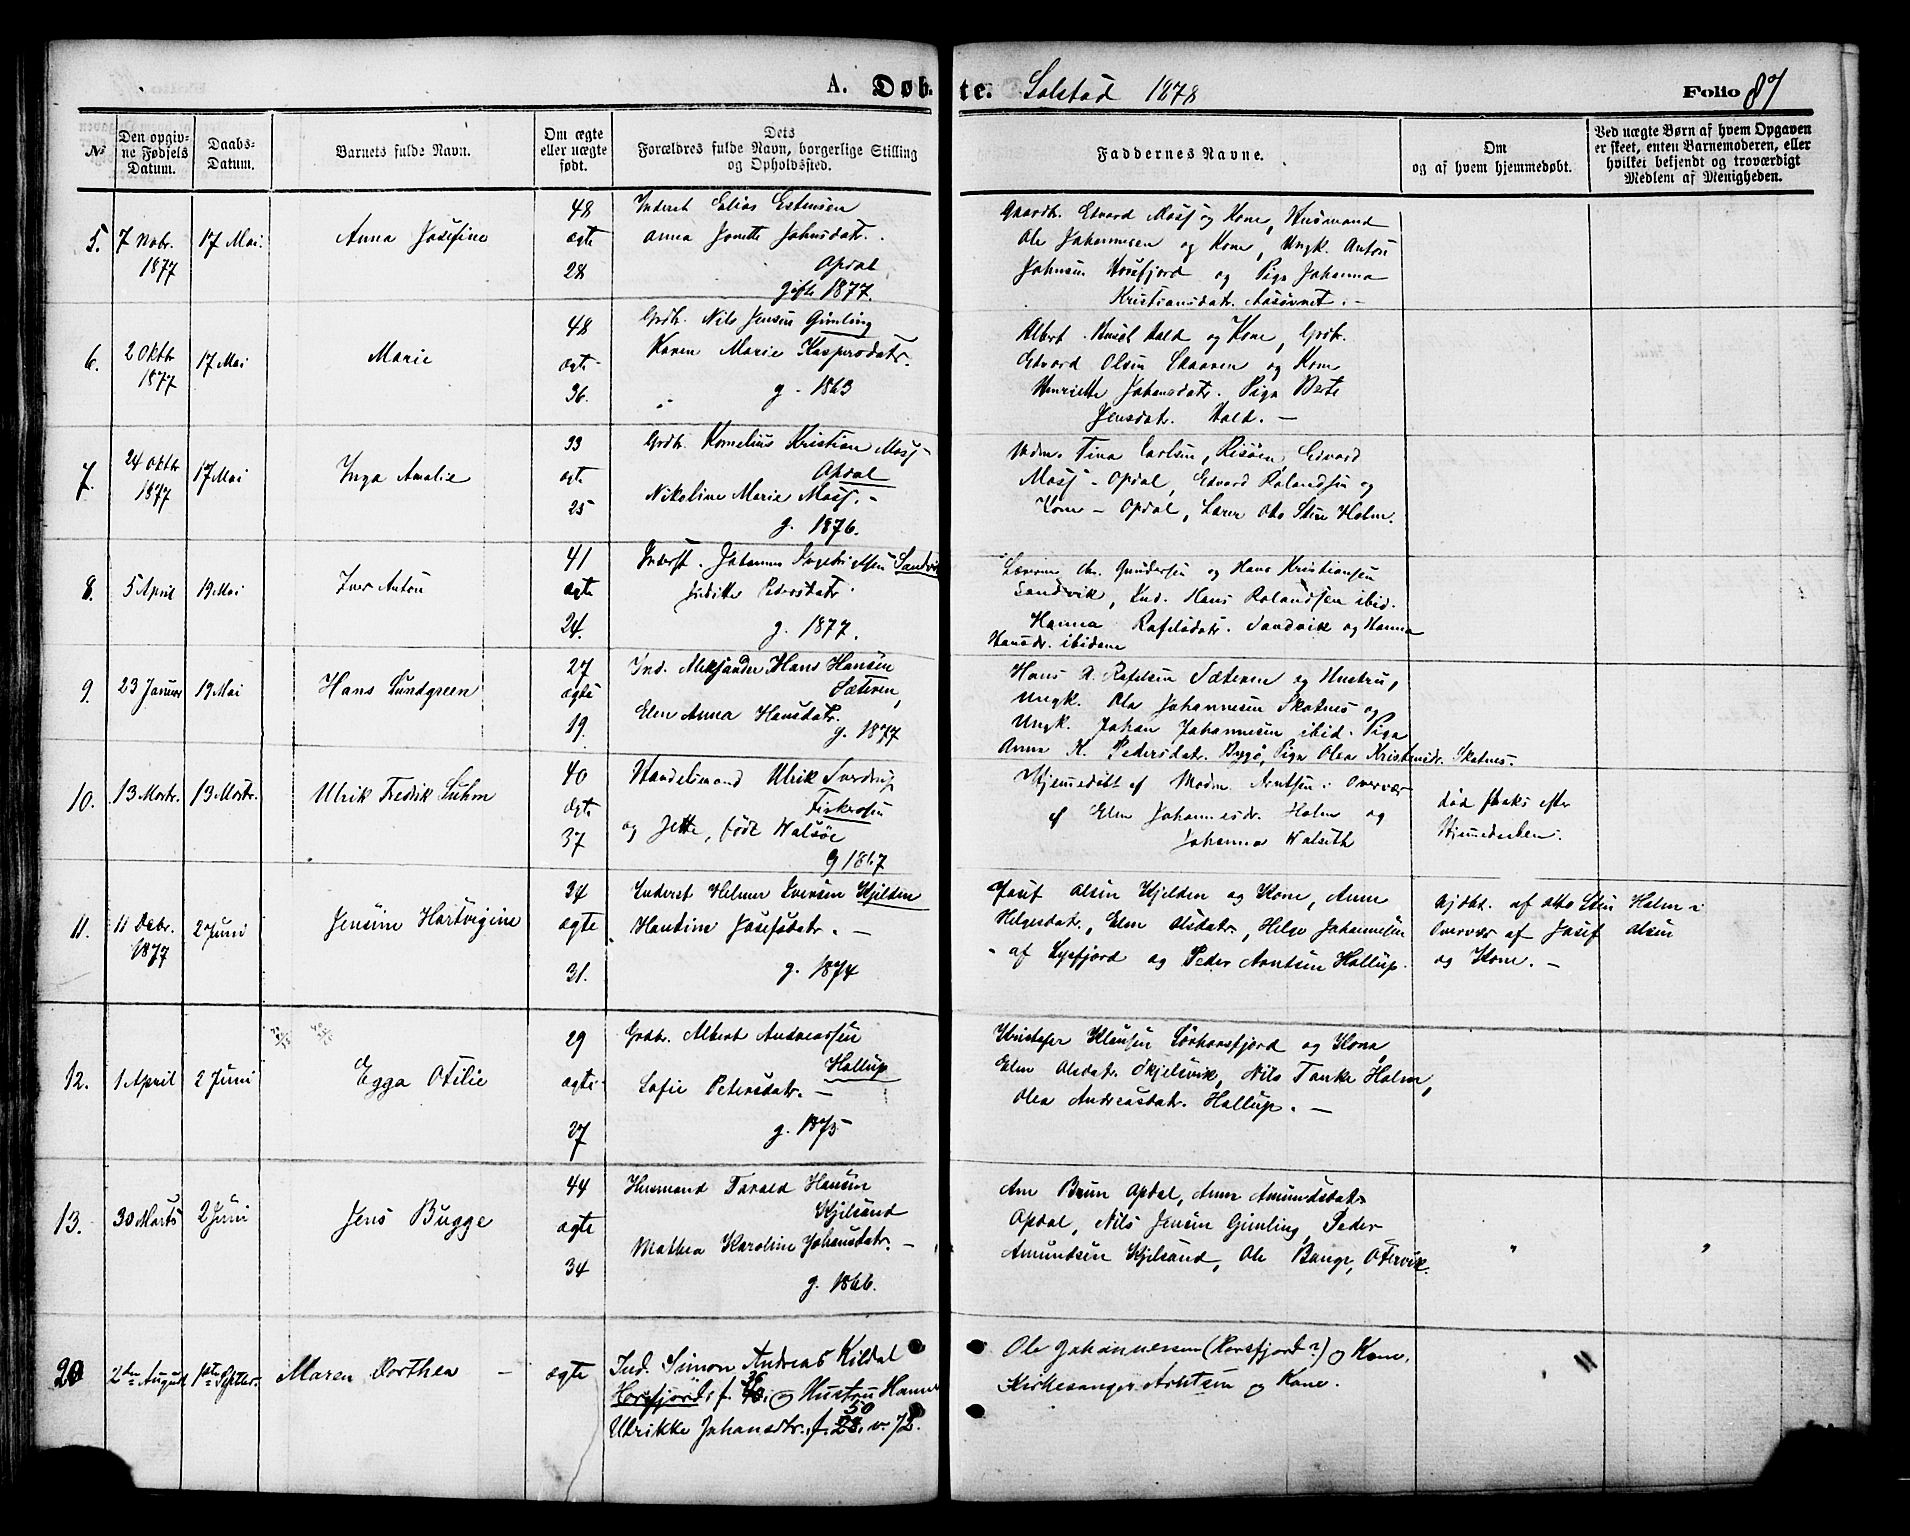 A. Døbte. Solstad 1878 Folio 87
№
Den opgivne Fødsels Datum.
Daabs-Datum.
Barnets fulde Navn.
Om ægte eller uægte født.
Dets Forældres fulde Navn, borgerlige Stilling og Opholdssted.
Faddernes Navne.
Om og af hvem hjemmedøbt.
Ved uægte Børn af hvem Opgaven er skeet, enten Barnemoderen, eller hvilket bekjendt og troværdigt Medlem af Menigheden.
5. 7 Nobr. 1877 17 Mai. Anna Josefine
48 ægte 28
Inderst Elias Estensen
Anna Jonette Johnsdatr.
Opdal
gift 1877.
Gaardb. Edvard Mosj og Kone, Husmand
Ole Johannesen og Kone, Ungk. Anton
Johnsen Horsfjord og Pige Johanna
Kristiansdatr. Aasövret. -
6. 2 Oktbr 1877 17 Mai Marie
48 ægte 36.
Grdb. Nils Jensen Gimling
Karen Marie Kaspersdatr.
g - 1863
Albert Hald og Kone, Grdb.
Edvard Olsen og Kone
Henriette Johansdatr. Pige Berte
Jensdatr. Hald. -
7. 24 Oktbr 1877 17 Mai Inga Amalie
33 ægte 25
Grdb. Kornelius Kristian Mosj -
Opdal
Nikoline Marie Mosj. -
g. 1876.
Madm. Tina Carlsen, Risöen, Edvard
Mosj - Opdal, Edvard Rolandsen og
Kone - Opdal, Lærer Otto Sten Holm.
8. 5 April 19 Mai Iver Anton
41 ægte 24.
Inderst. Johannes Ingebrigtsen Sandvik
Judith Pedersdatr.
g. 1877.
Lærerne Chr. Gundersen og Hans Kristiansen
Sandvik, Ind. Hans Rolandsen ibid.
Hanna Rafelsdatr. Sandvik og Hanna
Hansdr. ibidem
9. 23 Januar 19 Mai Hans Lundgreen
27 ægte 19.
Ind. Aleksander Hans Hansen
Sæteren,
Elen Anna Hansdatr.
g. 1877
Hans A. Rafelsen Sæteren og Hustru,
Ungk. Ole Johannesen Skotnes og
Ungk. Johan Johannesen ibid. Pige
Anna K. Pedersdatr. Bygö, Pige Olea Kristensdr. Skotnes.
10. 13 Marts. 13 Marts. Ulrik Fredik Suhm
40 ægte 37
Handelsmand Ulrik Sverdrup
Fiskersen
og Jette, født Walsøe
g 1867
Hjemmedöbt af Madm. Arntsen i Overvær
af Elen Johannesdr. Holm og
Johanna Walseth
död straks efter
Hjemmedaaben.
11. 11 Debr. 1877 2 Juni Jensine Hartvigine
34 ægte 31.
Inderst Helmer Iversen Kjelden
Hantine Josefsdatr. -
g. 1874
Josef Olsen Kjelden og Kone, Anne
Helgesdatr., Elen Olsdatr, Helge Johannesen
- af Lysfjord og Peder Arntsen Hallup.
Hjdbt. af Otto Sten Holm i
Overvær af Josef Olsen
og Kone. -
12. 1 April 2 Juni Egga Otilie
29 ægte 27
Grdb. Albert Andreassen
Hallup
Sofie Petersdatr. -
g. 1875
Kristofer Klausen Sörhorsfjord og Kone,
Elen Olsdatr. Skjelsvik, Nils Tanke Holm,
Olea Andreasdatr. Hallup. -
13. 30 Marts 2 Juni Jens Bugge
44 ægte 34
Husmand Tarald Hansen
Kjelsand
Mathea Karoline Johansdatr. -
g. 1866.
Arn Brun Opdal, Anne Amundsdatr
Opdal, Nils Jensen Gimling, Peder
Amundsen Kjelsand, Ole Bange, Otervik.
" "
20 2den August 1ste Septbr. Maren Dorthea - ægte
Ind. Simon Andreas Kildal
Horsfjord, f. og Hustru Hanna
Ulrikke Johansdtr., f. 50 v. 72.
Ole Johannesen (Horsfjord?) og Kone.
Kirkesanger Arntsen og Kone.
"